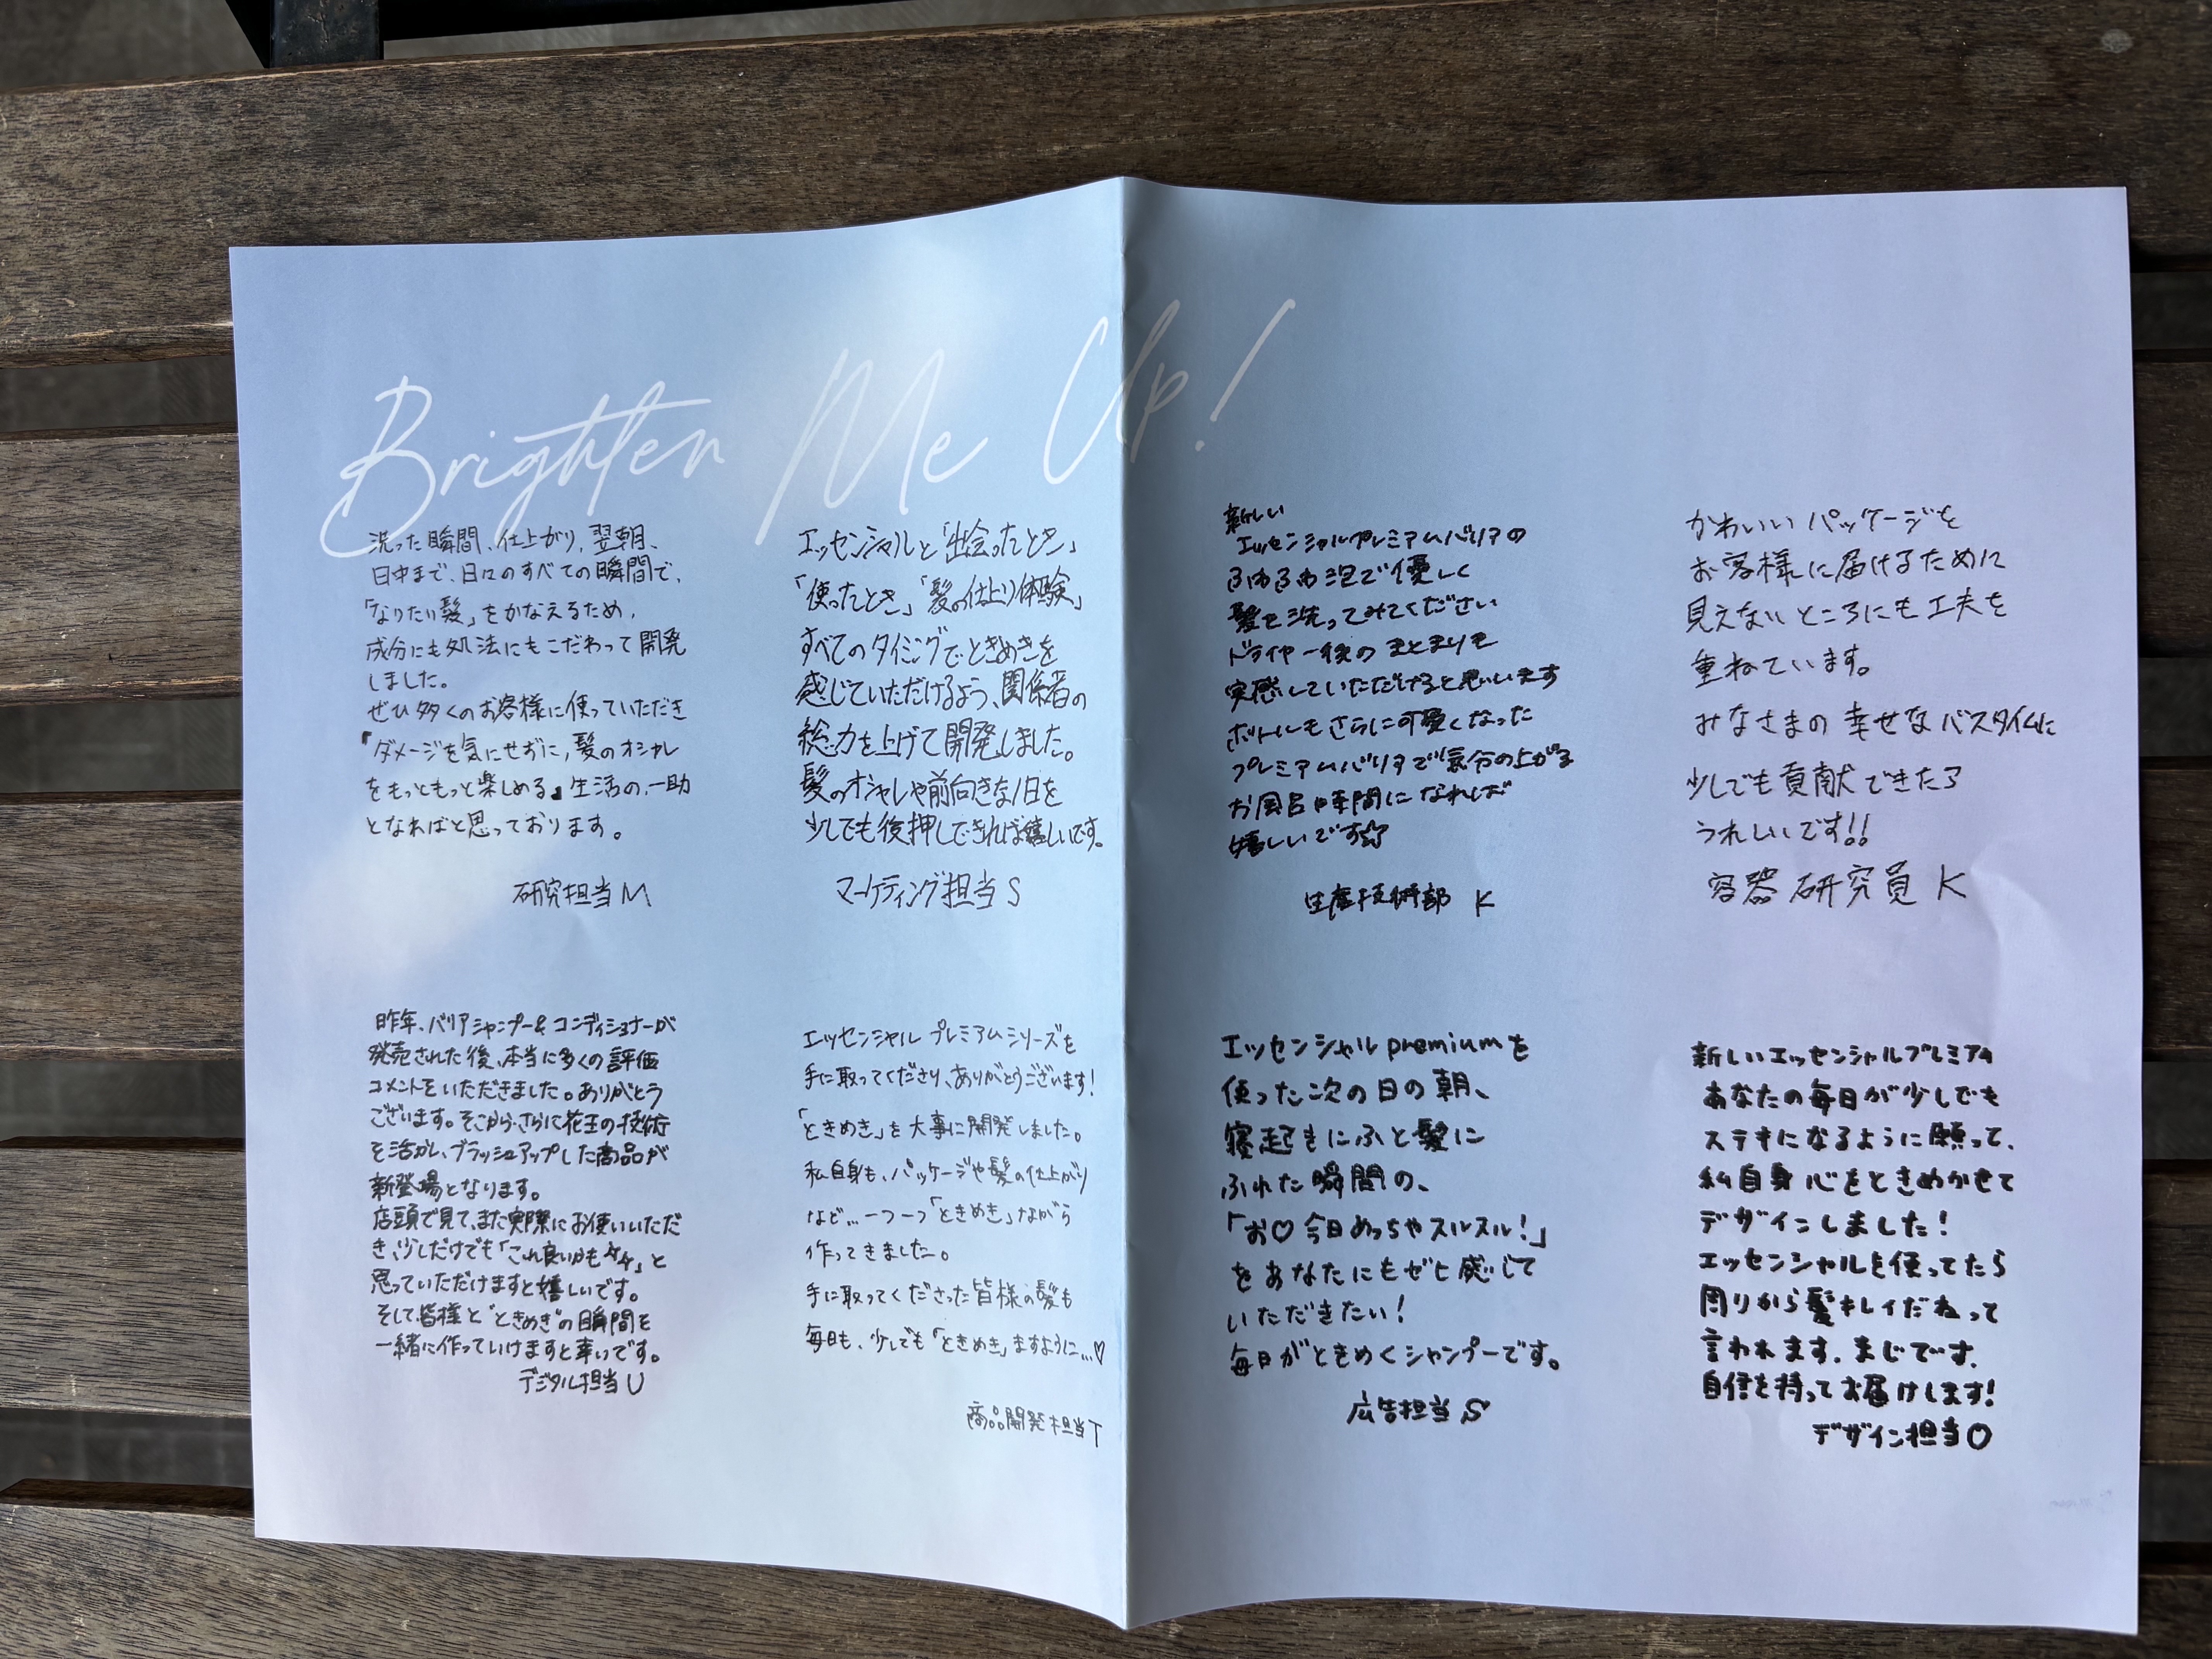 Brighten Me Up!
洗った瞬間、仕上がり、翌朝、
日中まで、日々のすべての瞬間で、
「なりたい髪」をかなえるため、
成分にも処法にもこだわって開発
しました。
ぜひ多くのお客様に使っていただき
『ダメージを気にせずに、髪のオシャレ
をもっともっと楽しめる』生活の、一助
となればと思っております。
研究担当 M
エッセンシャルと「出会ったとき」
「使ったとき」「髪の仕上り体験」
すべてのタイミングでときめきを
感じていただけるよう、関係者の
総力を上げて開発しました。
髪のオシャレや前向きな1日を
少しでも後押しできれば嬉しいです。
マーケティング担当 S
新しい
エッセンシャルプレミアムバリアの
ふわふわ泡で優しく
髪を洗ってみてください
ドライヤー後のまとまりを
実感していただけると思います
ボトルもさらに可愛くなった
プレミアムバリアで気分の上がる
お風呂時間になれば
嬉しいです☆
生産技術部 K
かわいいパッケージを
お客様に届けるために
見えないところにも工夫を
重ねています。
みなさまの幸せなバスタイムに
少しでも貢献できたら
うれしいです!!
容器研究員 K
昨年、バリアシャンプー&コンディショナーが
発売された後、本当に多くの評価
コメントをいただきました。ありがとう
ございます。そこから、さらに花王の技術
を活かし、ブラッシュアップした商品が
新登場となります。
店頭で見て、また実際にお使いいただ
き、少しだけでも「これ良いかも」と
思っていただけますと嬉しいです。
そして、皆様と"ときめき"の瞬間を
一緒に作っていけますと幸いです。
デジタル担当 U
エッセンシャル プレミアムシリーズを
手に取ってくださり、ありがとうございます!
「ときめき」を大事に開発しました。
私自身も、パッケージや髪の仕上がり
など…一つ一つ「ときめき」ながら
作ってきました。
手に取ってくださった皆様の髪も
毎日も、少しでも「ときめき」ますように…♡
商品開発担当 T
エッセンシャル premiumを
使った次の日の朝、
寝起きにふと髪に
ふれた瞬間の、
「お♡今日めっちゃスルスル!」
をあなたにもゼヒ感じて
いただきたい!
毎日がときめくシャンプーです。
広告担当 S
新しいエッセンシャルプレミアム
あなたの毎日が少しでも
ステキになるように願って、
私自身心をときめかせて
デザインしました!
エッセンシャルを使ってたら
周りから髪キレイだねって
言われます、まじです、
自信を持ってお届けします!
デザイン担当 O